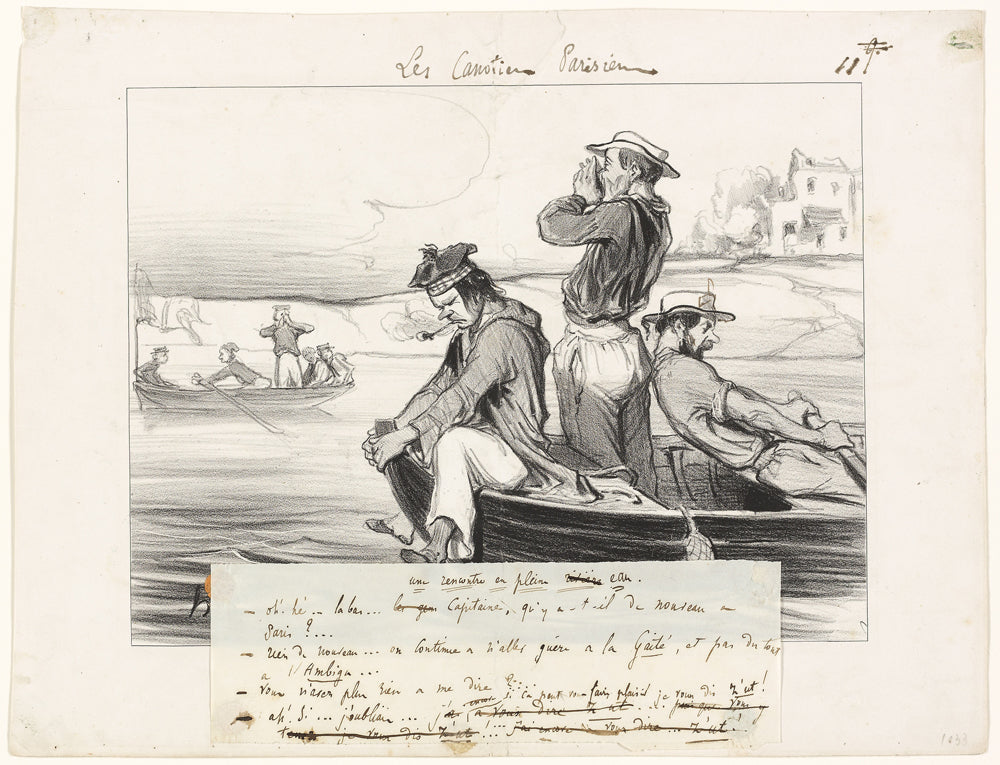 Les Canotiers Parisiens
11
une rencontre en pleine rivière eau.
— oh! hé... là bas... les gens Capitaine, qu'y a-t-il de nouveau a
Paris ?...
— rien de nouveau... on continue a n'aller guère a la Gaité, et pas du tout
a l'Ambigu...
— vous n'avez plus rien a me dire ?...
— ah! si... j'oubliais... si ça peut vous faire plaisir je vous dis Z'ut!
a vous dire Z'ut
je vous dis Z'ut!... j'ai encore a vous dire... Z'ut!